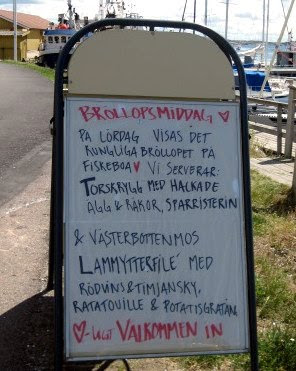 BRÖLLOPSMIDDAG ♥
PÅ LÖRDAG VISAS DET
KUNGLIGA BRÖLLOPET PÅ
FISKEBOA ♥ VI SERVERAR:
TORSKRYGG MED HACKADE
ÄGG & RÄKOR, SPARRISTERIN
& VÄSTERBOTTENMOS
LAMMYTTERFILÉ MED
RÖDVINS & TIMJANSKY,
RATATOUILLE & POTATISGRATÄNG
♥-LIGT VÄLKOMMEN IN